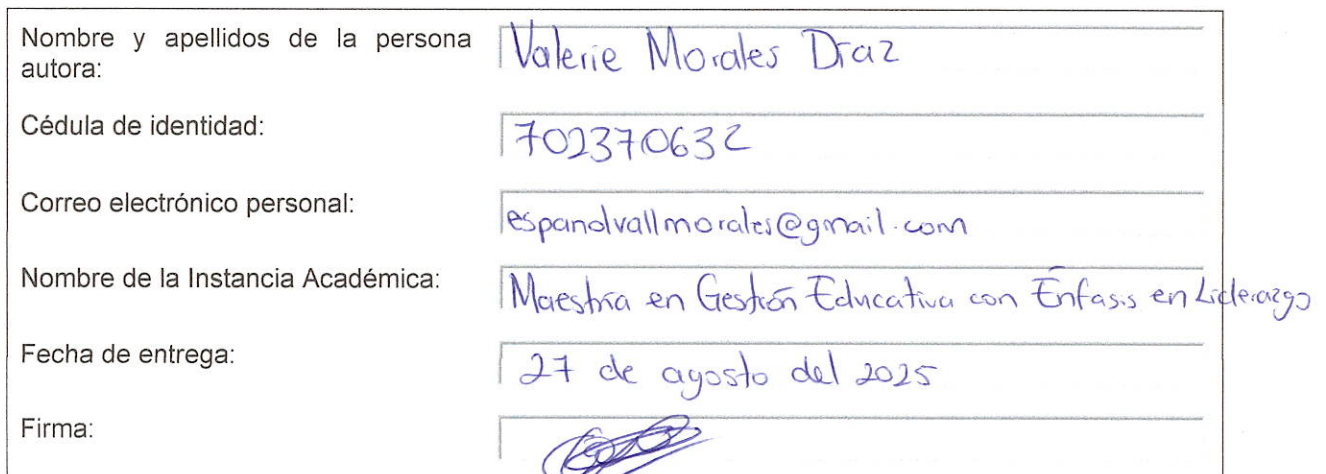 Nombre y apellidos de la persona autora: Valerie Morales Díaz
Cédula de identidad: 702370632
Correo electrónico personal: espanolvallmorales@gmail.com
Nombre de la Instancia Académica: Maestría en Gestión Educativa con Énfasis en Liderazgo
Fecha de entrega: 27 de agosto del 2025
Firma: